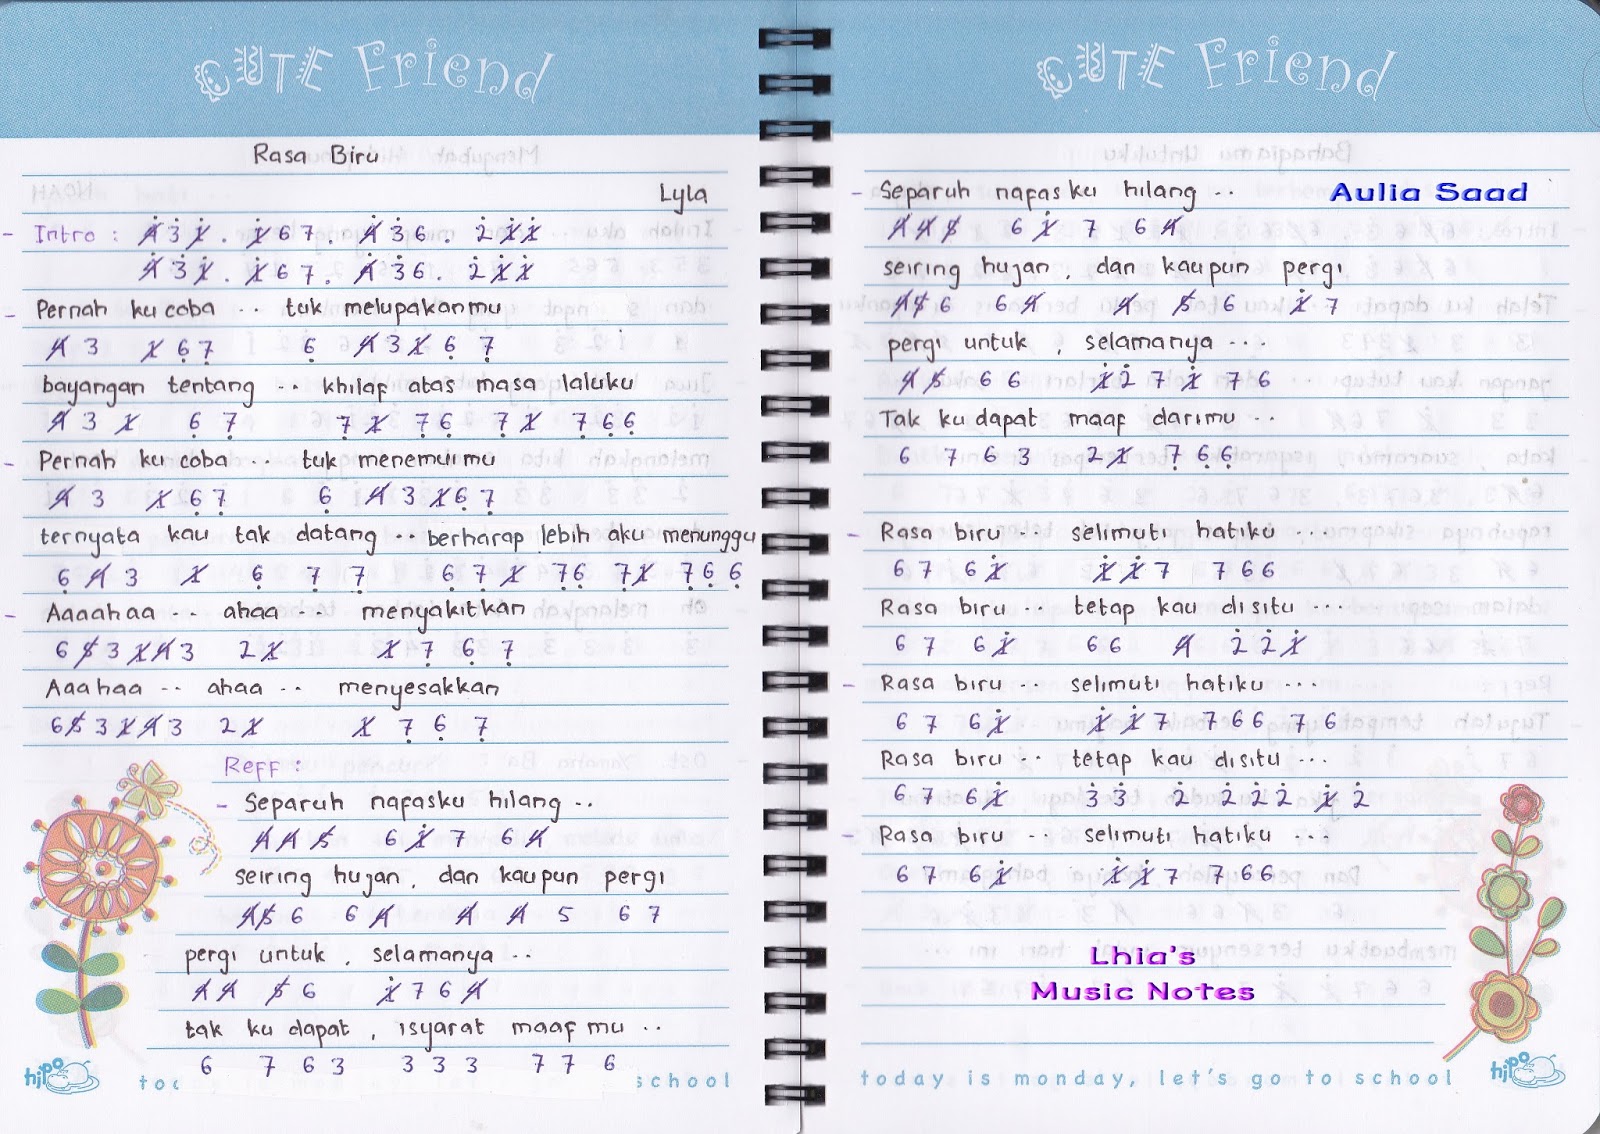 CUTE Friend
Rasa Biru
Lyla
- Intro : 4 3 1 . 1 6 7 . 4 3 6 . 2 1 1
4 3 1 . 1 6 7 . 4 3 6 . 2 1 1
- Pernah ku coba .. tuk melupakanmu
4 3 1 6 7 6 4 3 1 6 7
bayangan tentang .. khilaf atas masa laluku
4 3 1 6 7 7 1 7 6 7 1 7 6 6
- Pernah ku coba .. tuk menemuimu
4 3 1 6 7 6 4 3 1 6 7
ternyata kau tak datang .. berharap lebih aku menunggu
6 4 3 1 6 7 7 6 7 1 7 6 7 1 7 6 6
- Aaaahaa .. ahaa menyakitkan
6 5 3 1 4 3 2 1 1 7 6 7
Aaahaa .. ahaa .. menyesakkan
6 5 3 1 4 3 2 1 1 7 6 7
Reff :
- Separuh nafasku hilang ..
4 4 5 6 1 7 6 4
seiring hujan , dan kaupun pergi
4 5 6 6 4 4 4 5 6 7
pergi untuk , selamanya ..
4 4 5 6 1 7 6 4
tak ku dapat , isyarat maaf mu ..
6 7 6 3 3 3 3 7 7 6
hipo
school
CUTE Friend
- Separuh nafas ku hilang ..
Aulia Saad
4 4 5 6 1 7 6 4
seiring hujan , dan kaupun pergi
4 5 6 6 4 4 5 6 1 7
pergi untuk , selamanya ...
4 5 6 6 1 2 7 1 7 6
Tak ku dapat maaf darimu ..
6 7 6 3 2 1 7 6 6
- Rasa biru .. selimuti hatiku ...
6 7 6 1 1 1 7 7 6 6
Rasa biru .. tetap kau disitu ...
6 7 6 1 6 6 4 2 2 1
- Rasa biru .. selimuti hatiku ...
6 7 6 1 1 1 7 7 6 6 7 6
Rasa biru .. tetap kau disitu ...
6 7 6 1 3 3 2 2 2 2 1 2
- Rasa biru .. selimuti hatiku ...
6 7 6 1 1 1 7 7 6 6
Lhia's
Music Notes
today is monday, let's go to school
hipo